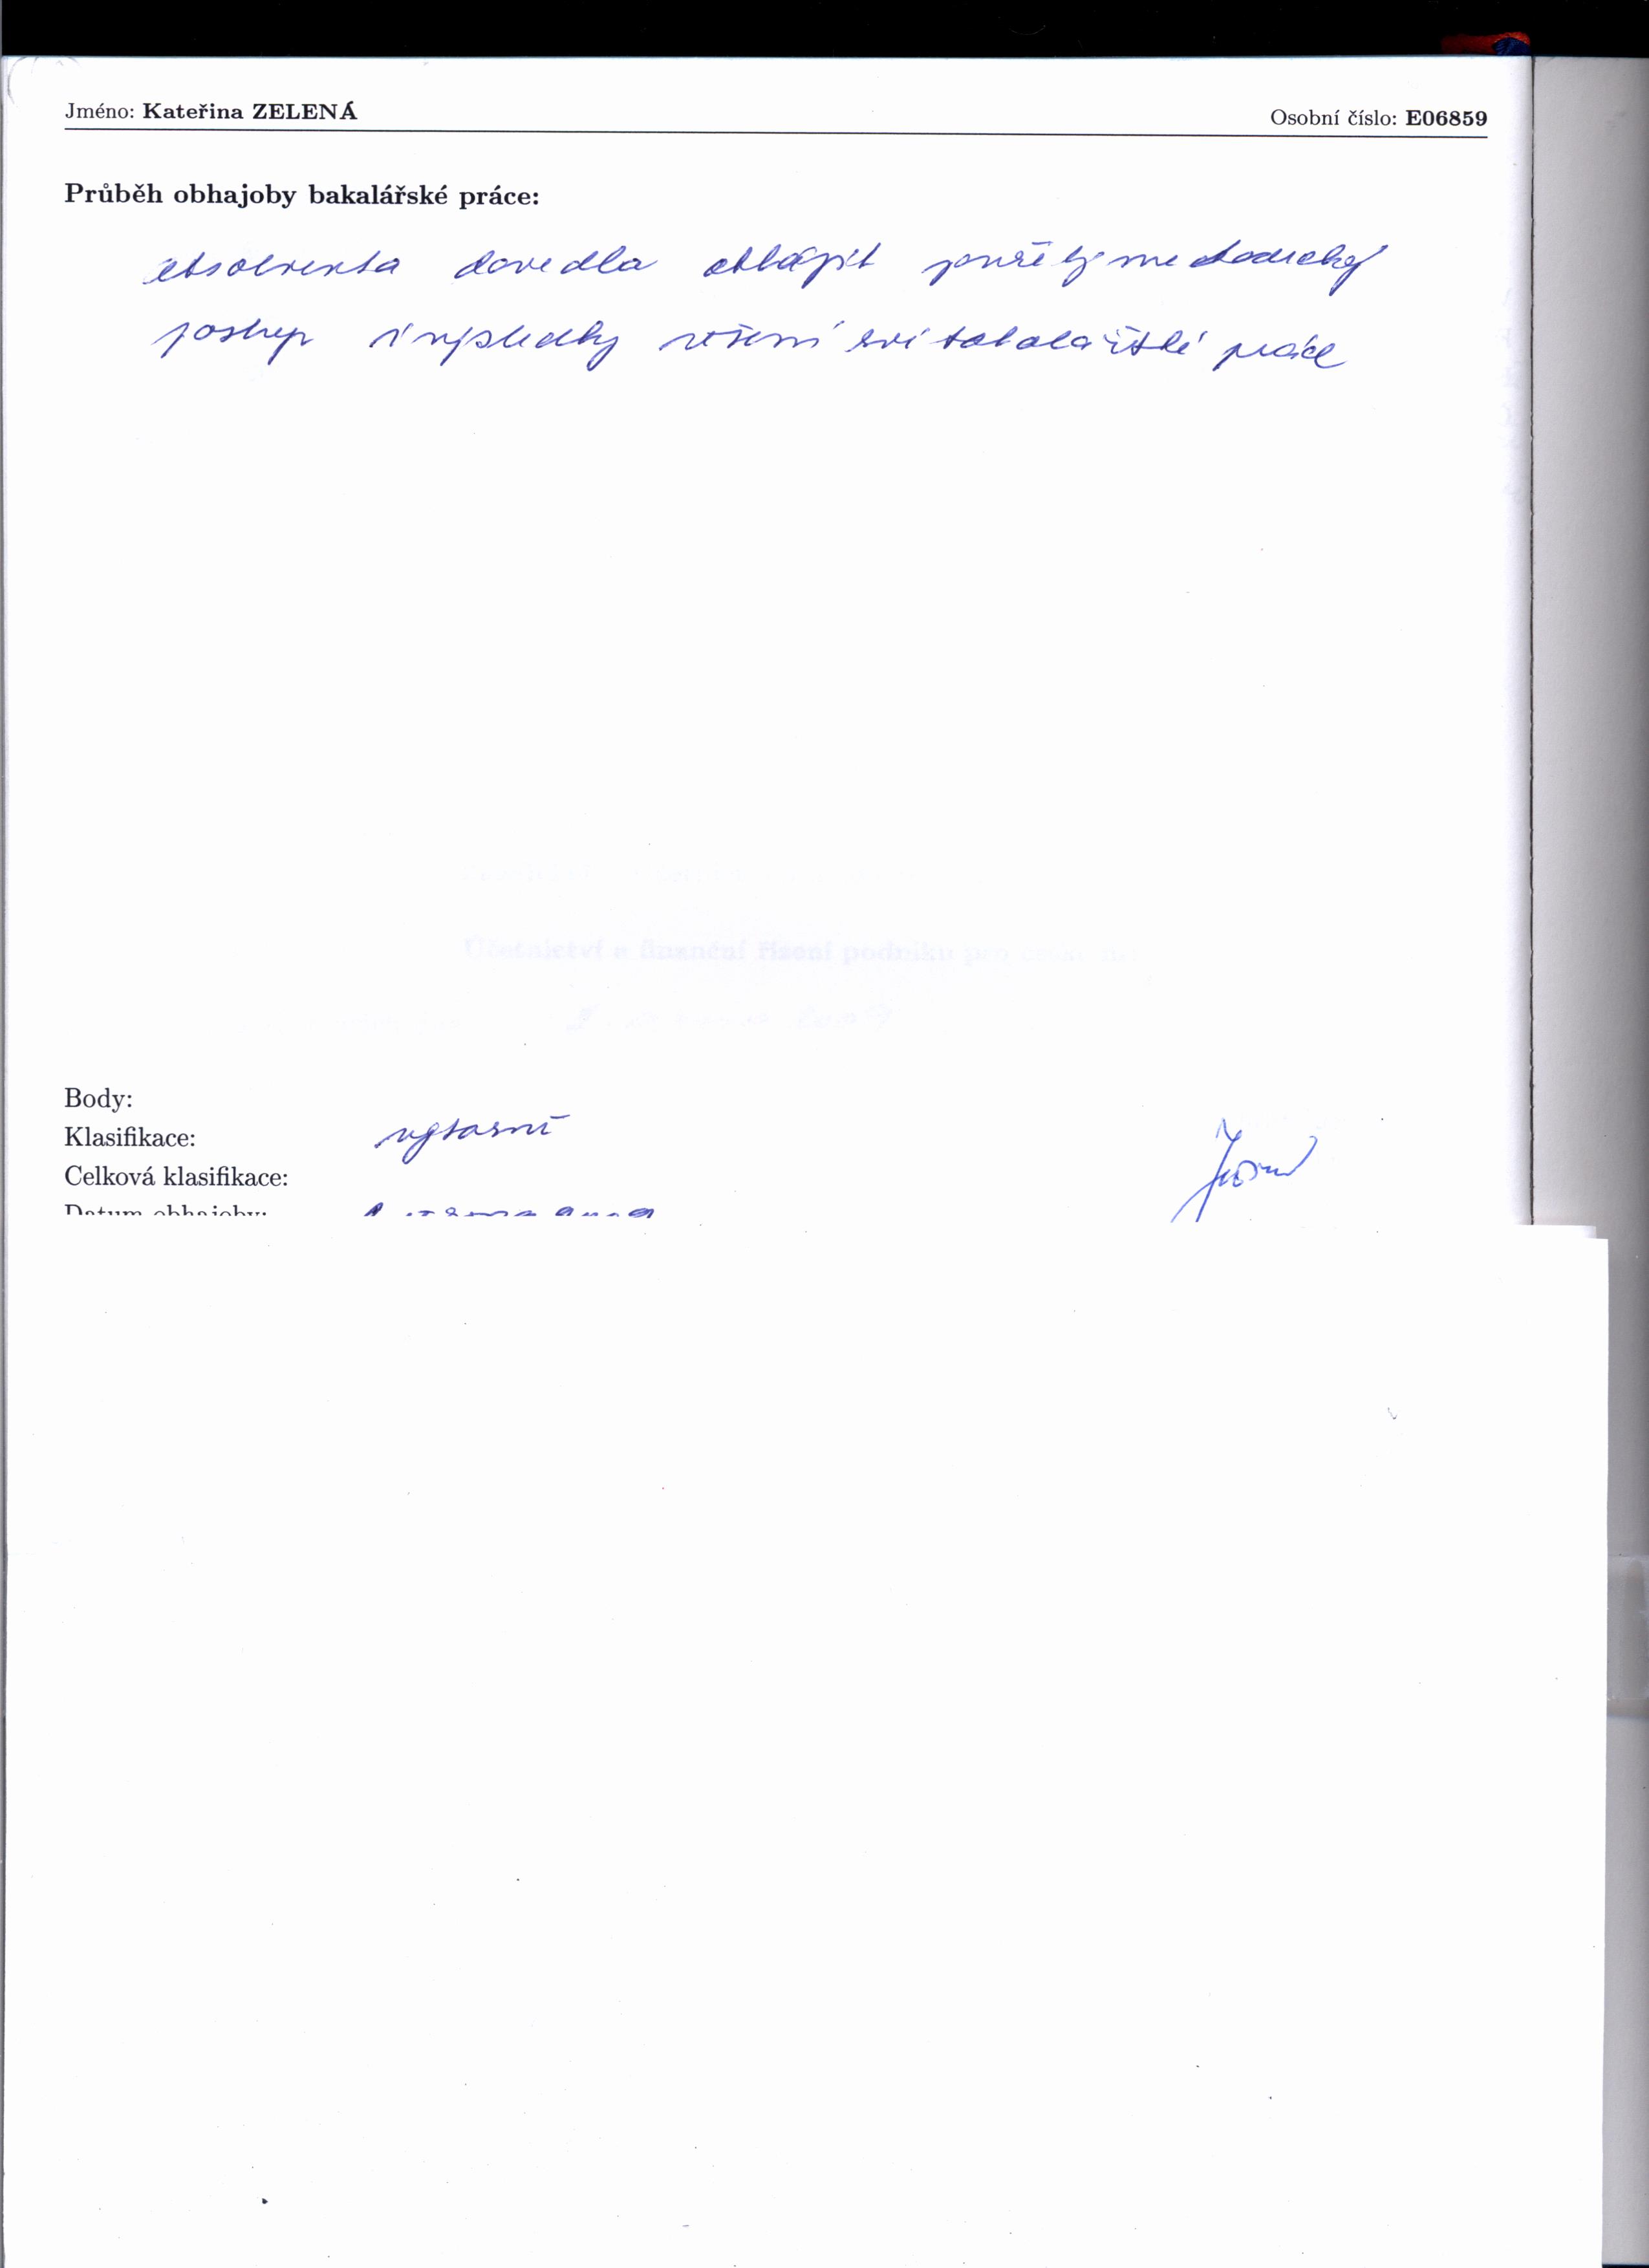 Jméno: Kateřina ZELENÁ
Osobní číslo: E06859
Průběh obhajoby bakalářské práce:
absolventka dovedla obhájit použitý metodický
postup i výsledky řešení své bakalářské práce
Účetnictví a finanční řízení podniku pro
Body:
Klasifikace: výborně
Celková klasifikace:
Datum obhajoby: